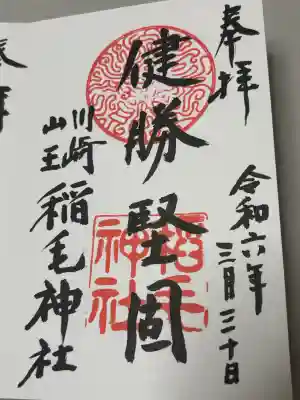 奉拝
令和六年
三月二十日
健勝堅固
稲毛
神社
川崎
山王
稲毛神社